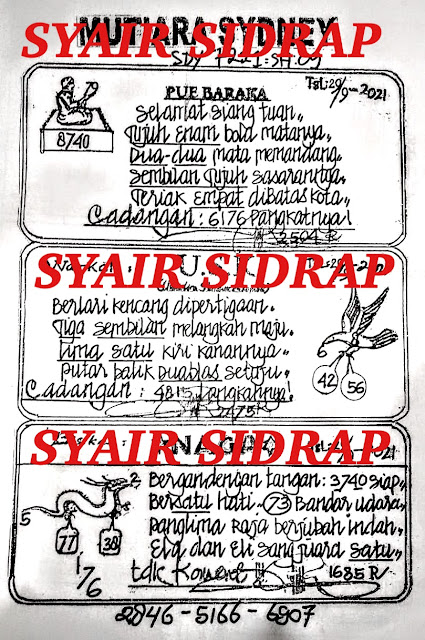 MUTIARA SYDNEY
SYAIR SIDRAP
PUE BARAKA
8740
Selamat siang tuan..
Tujuh Enam bola matanya.
Dua-dua mata memandang.
Sembilan Tujuh sasarannya.
Teriak Empat dibatas kota.
Cadangan: 6176 Pangkatnya!
SYAIR SIDRAP
Berlari kencang dipertigaan.
Tiga sembilan melangkah maju.
Lima satu kiri kanannya..
Putar balik Duablas setuju.
Cadangan: 4815
2475 R
6
42
56
SYAIR SIDRAP
Bergandengan tangan: 3740 siap..
Bersatu hati. 73 Bandar udara
Panglima Raja berjubah indah.
Ela dan Eli sang juara satu..
1685 R
2
5
77
38
1
7
6
2846-5166-6907